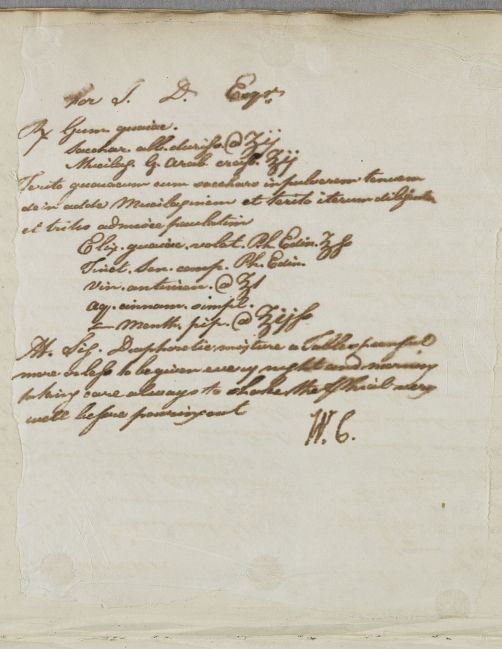 For J. D. Esqr
℞ Gum. guaiac.
Sacchar. alb. duriss. @ ʒij
Mucilag. G. Arab. crass. ʒij
Terito guaiacum cum saccharo in pulverem tenuem
dein adde Mucilaginem et terito iterum diligenter
et tritis admisce paulatim
Elix. guaiac. volat. Ph. Edin. ʒß
Tinct. Sen. comp. Ph. Edin.
Vin. antimon. @ ʒi
Aq. cinnam. simpl.
— Menth. pip. @ ʒijß
M. Sig. Diaphoretic mixture a Tablespoonful
more or less to be given every night and morning
taking care always to shake the phial very
well before pouring out
W. C.